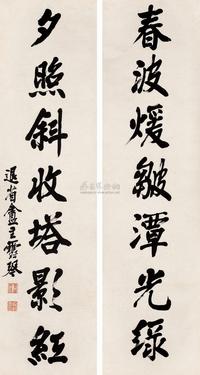 春波煖皺潭光綠
夕照斜收塔影紅
退省盦主